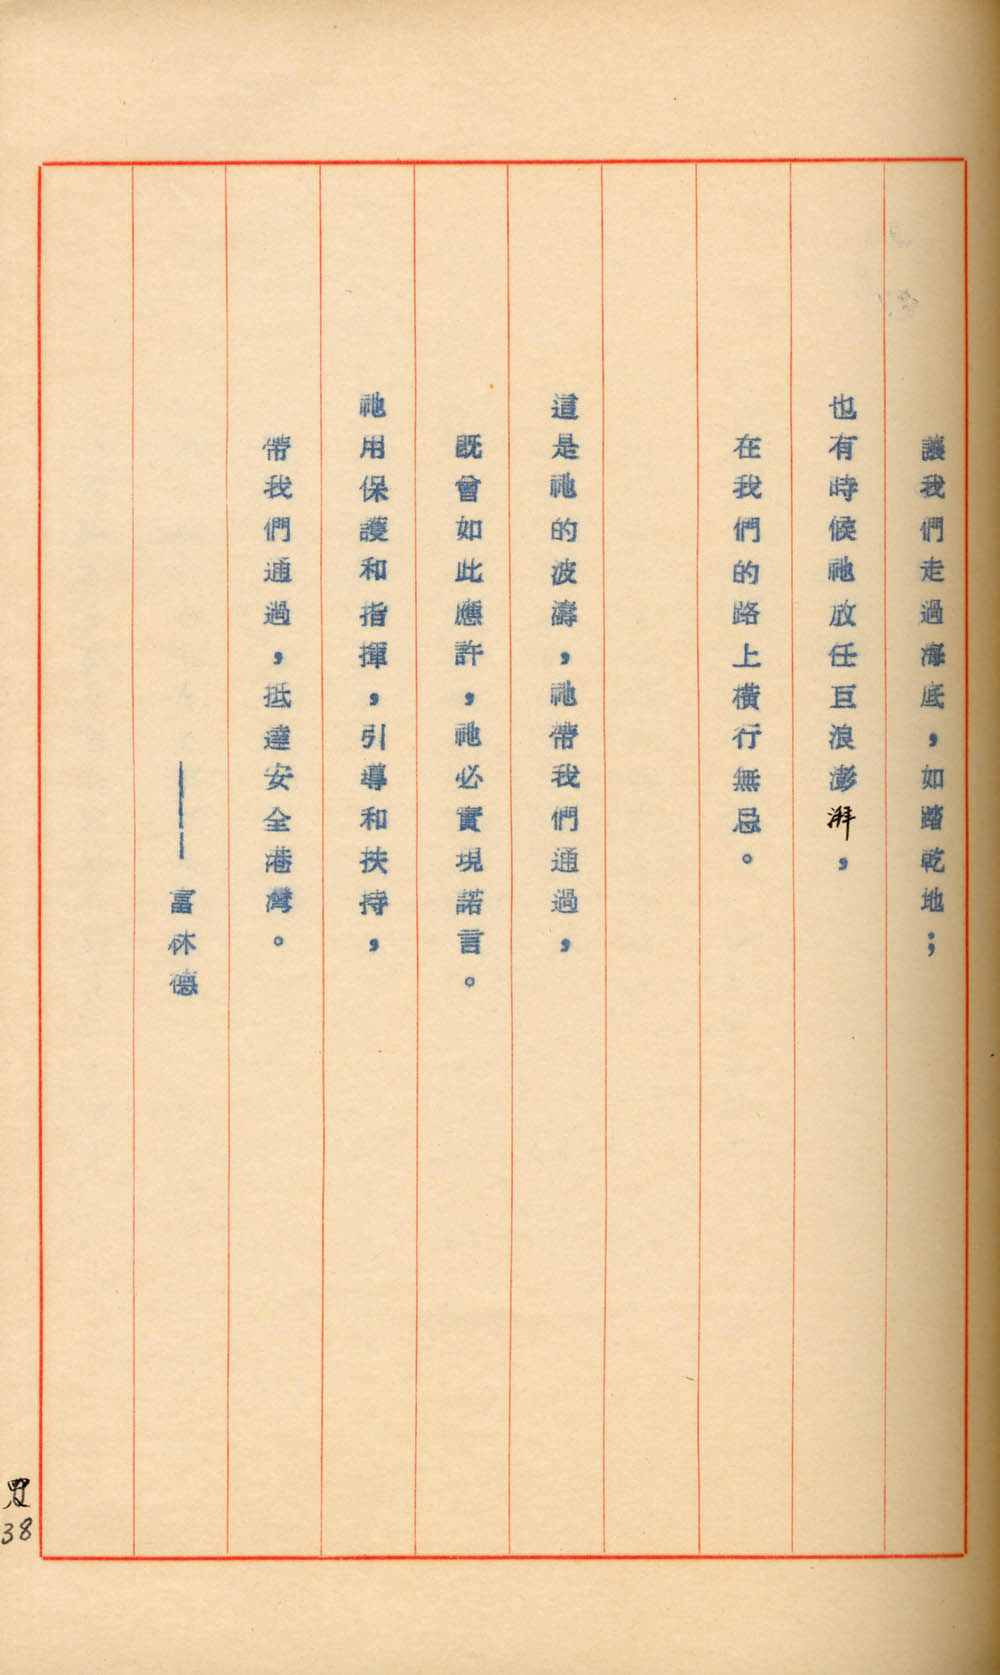 讓我們走過海底，如踏乾地；
也有時候祂放任巨浪澎湃，
在我們的路上橫行無忌。
這是祂的波濤，祂帶我們通過，
既曾如此應許，祂必實現諾言。
祂用保護和指揮，引導和扶持，
帶我們通過，抵達安全港灣。
——富林德
38